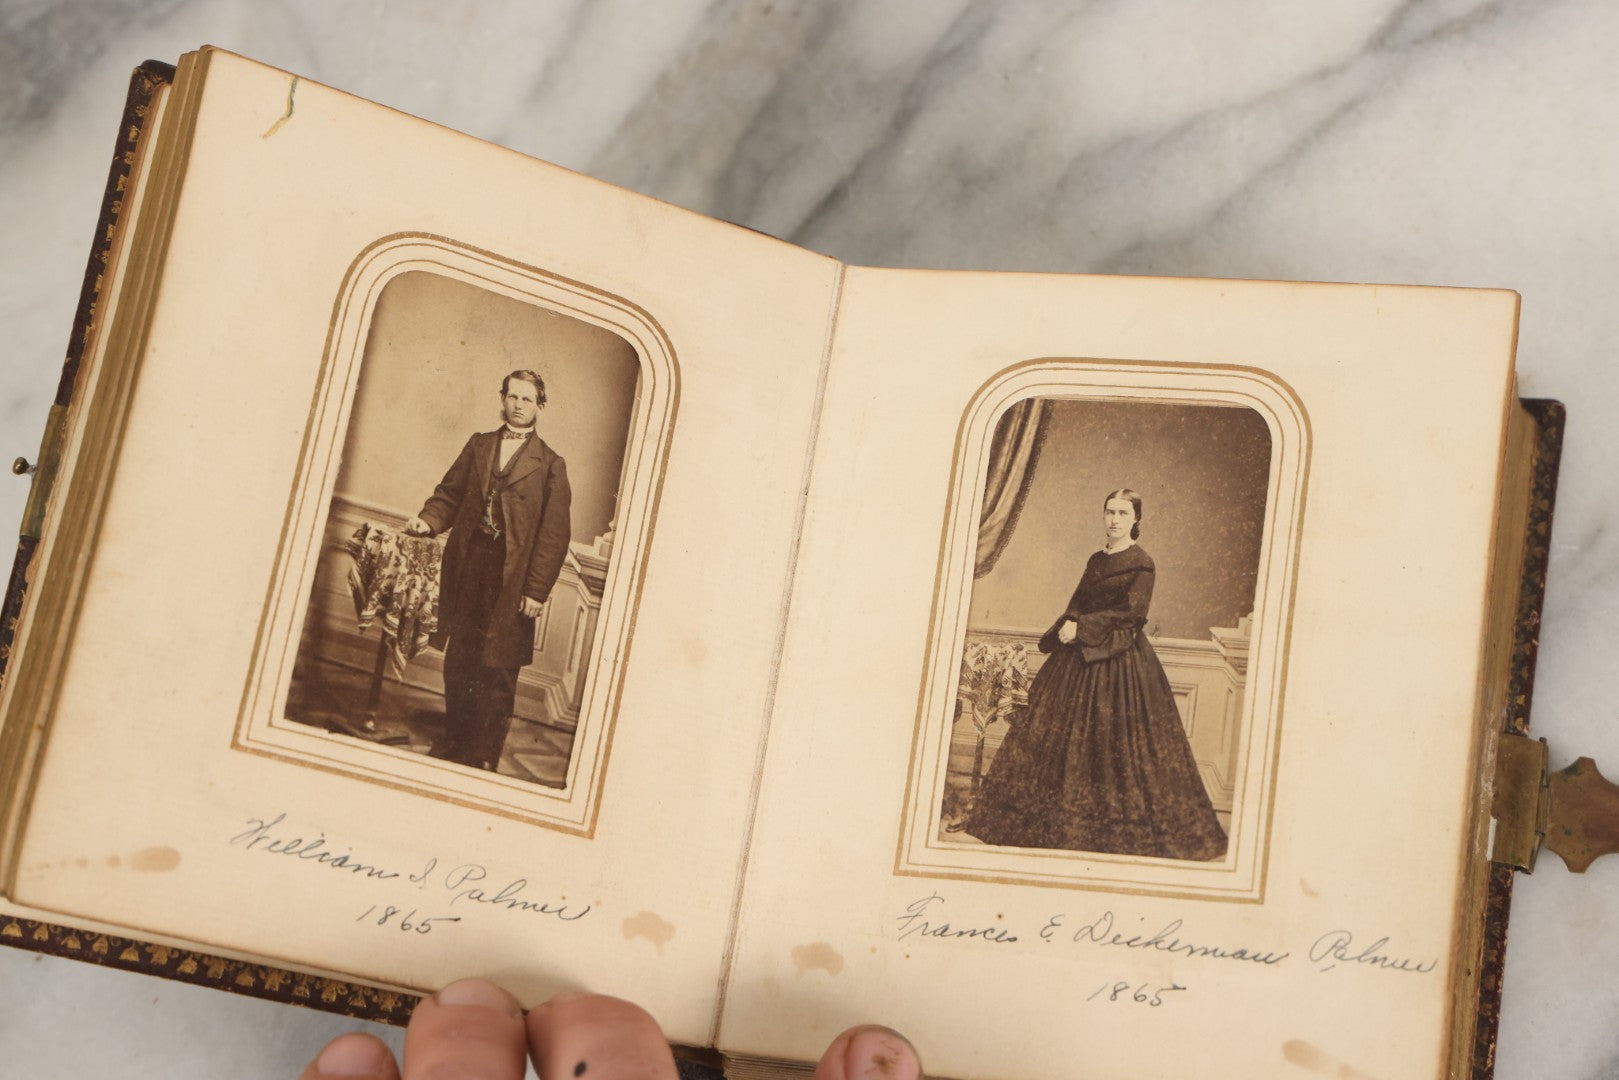 William I. Palmer
1865
Frances E. Dickerman Palmer
1865